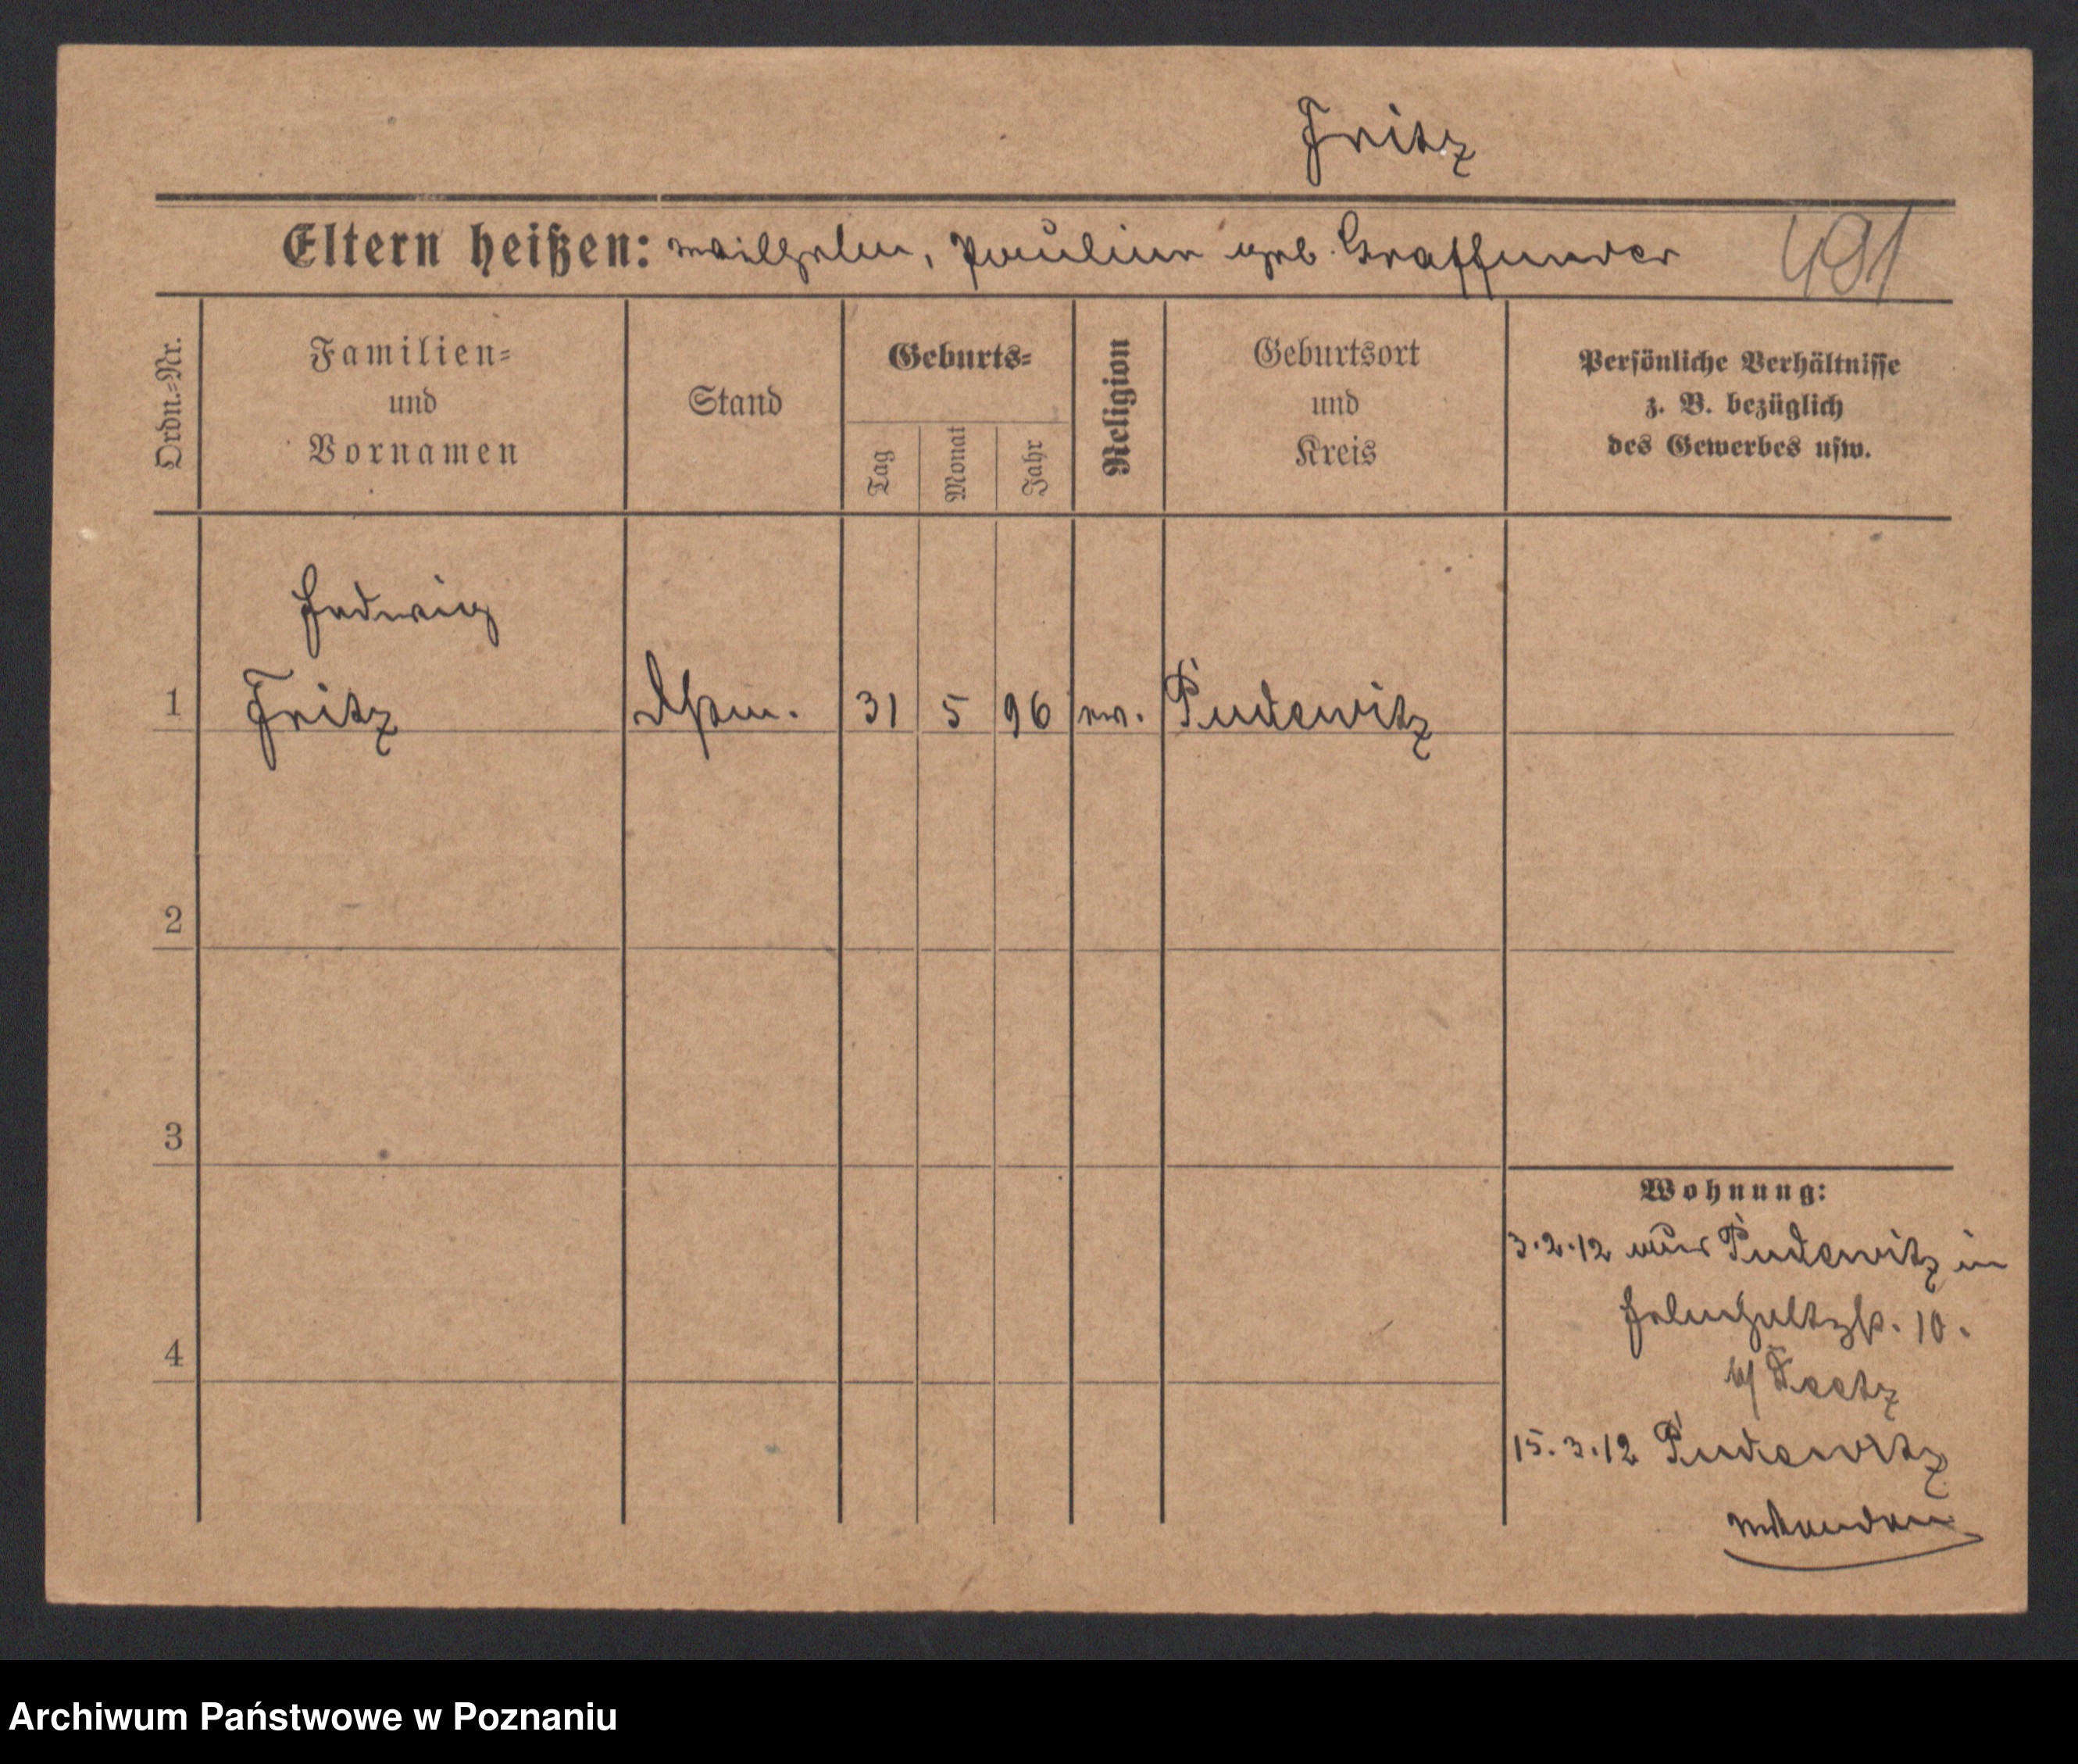 Fritz
Eltern heißen: Wilhelm, Pauline geb. Graffunder 491
Ordn.-Nr.
Familien-
und
Vornamen
Stand
Geburts-
Tag
Monat
Jahr
Religion
Geburtsort
und
Kreis
Persönliche Verhältnisse
z. B. bezüglich
des Gewerbes usw.
Hedwig
1 Fritz 31 5 96 ev. Pudewitz
2
3
4
Wohnung:
3.2.12 aus Pudewitz in
Helmholtzst. 10.
b/
15.3.12 Pudewitz
Archiwum Państwowe w Poznaniu